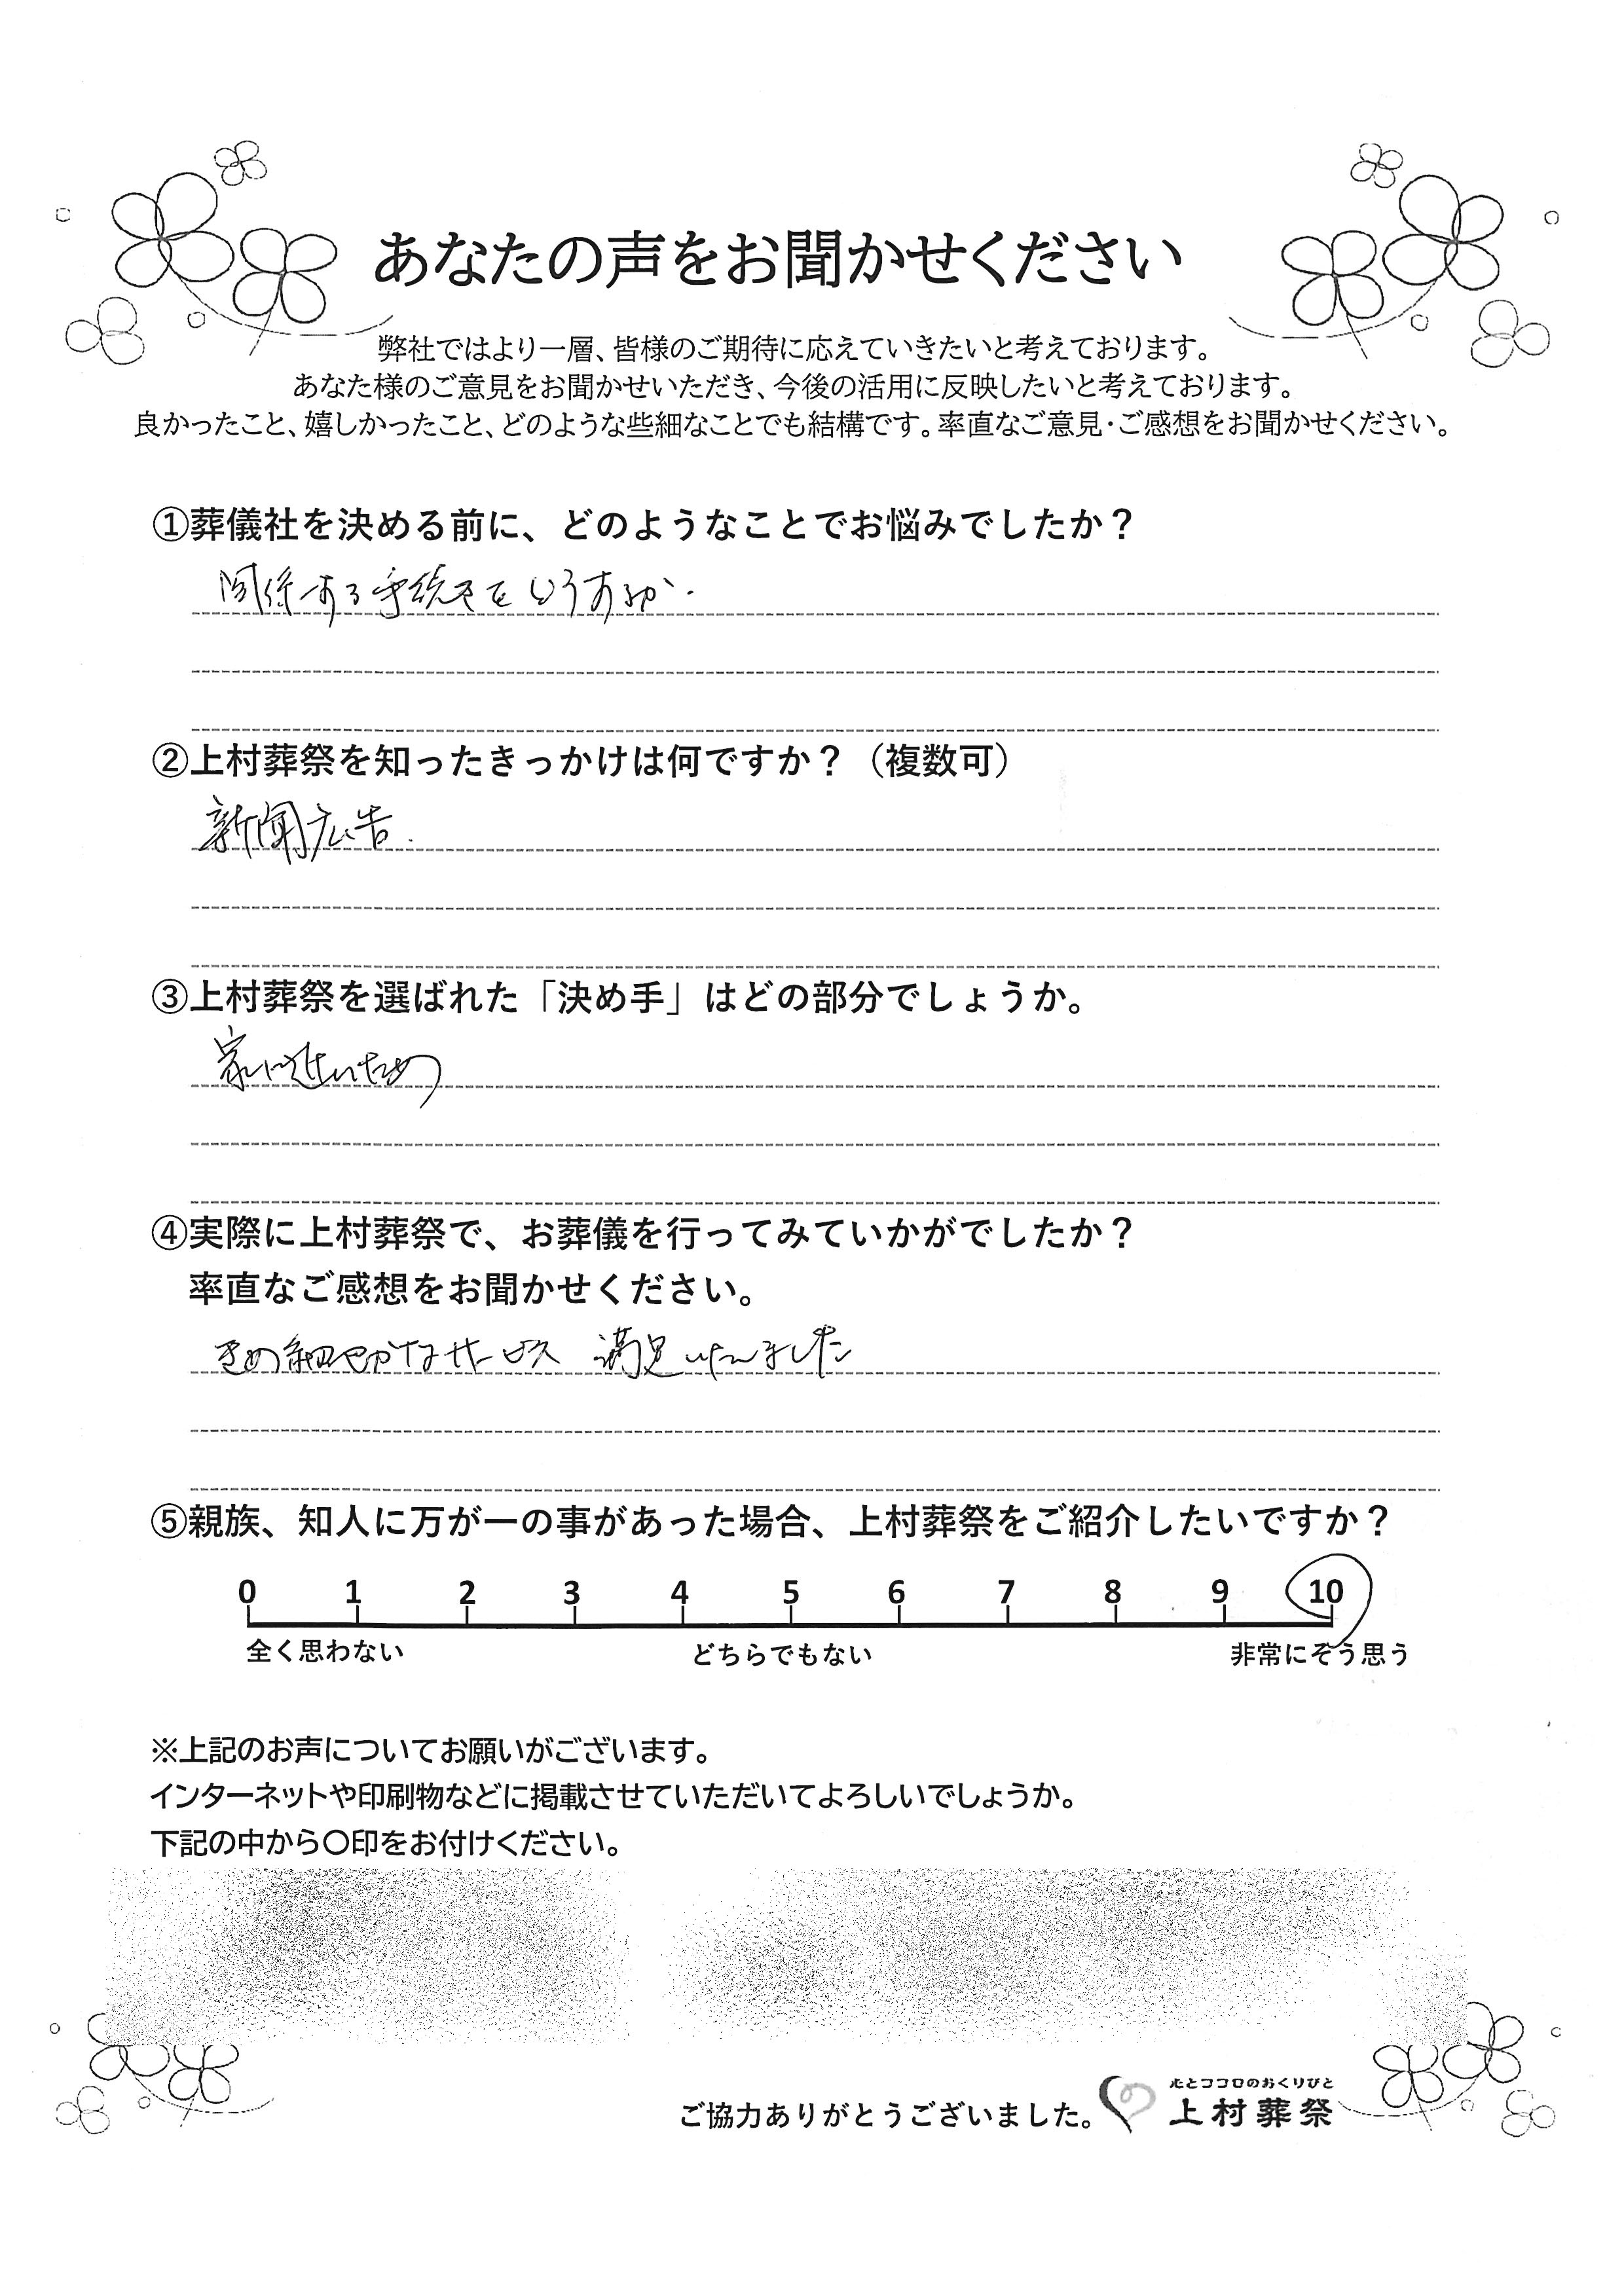 あなたの声をお聞かせください
弊社ではより一層、皆様のご期待に応えていきたいと考えております。
あなた様のご意見をお聞かせいただき、今後の活用に反映したいと考えております。
良かったこと、嬉しかったこと、どのような些細なことでも結構です。率直なご意見・ご感想をお聞かせください。
①葬儀社を決める前に、どのようなことでお悩みでしたか？
関係する手続きをどうするか.
②上村葬祭を知ったきっかけは何ですか？（複数可）
新聞広告.
③上村葬祭を選ばれた「決め手」はどの部分でしょうか。
家に近いため
④実際に上村葬祭で、お葬儀を行ってみていかがでしたか？
率直なご感想をお聞かせください。
きめ細やかなサービス 満足いたしました
⑤親族、知人に万が一の事があった場合、上村葬祭をご紹介したいですか？
0 1 2 3 4 5 6 7 8 9 10
全く思わない どちらでもない 非常にそう思う
※上記のお声についてお願いがございます。
インターネットや印刷物などに掲載させていただいてよろしいでしょうか。
下記の中から〇印をお付けください。
心とココロのおくりびと
ご協力ありがとうございました。 上村葬祭